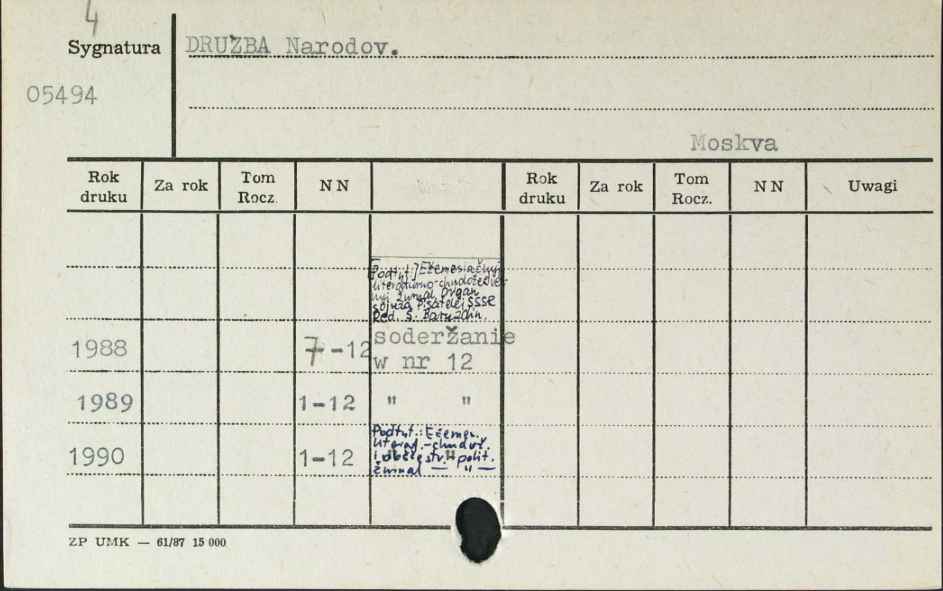 4
Sygnatura
DRUŽBA Narodov.
05494
Moskva
Rok druku
Za rok
Tom Rocz.
N N
Rok druku
Za rok
Tom Rocz.
N N
Uwagi
[Podtyt.] Ežemesiačnyj
literaturno-chudožestven-
nyj žurnal. Organ
sojuza pisatelej SSSR
Red. S. Baruzdin.
1988 7-12 soderžanie
w nr 12
1989 1-12 " "
Podtyt.: Ežemes.
literat.-chudož.
1990 1-12 i občšestv. " polit.
žurnal — " —
ZP UMK — 61/87 15 000